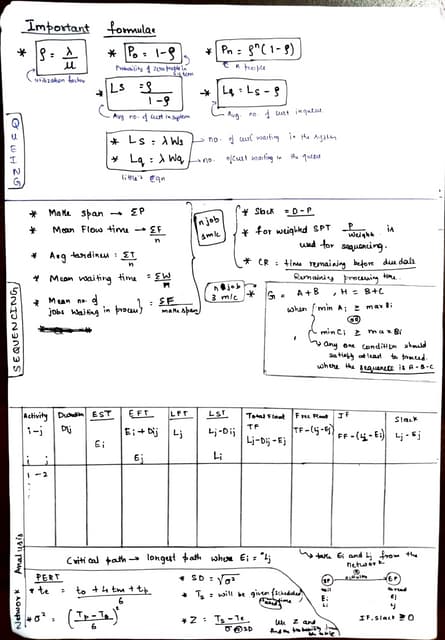 Important formulae
* ρ = λ/μ
utilization factor
* P₀ = 1-ρ
Probability of zero people in system
* Pn = ρⁿ(1-ρ)
n people
Ls = ρ/(1-ρ)
Avg no. of cust in system
* Lq = Ls - ρ
Avg. no. of cust in queue
* Ls = λWs → no. of cust waiting in the system
* Lq = λWq → no. of cust waiting in the queue
little's eqn
QUEING
* Make span → ΣP
* Mean Flow time → ΣF/n
* Avg tardiness : ΣT/n
* Mean waiting time = ΣW/n
* Mean no. of jobs waiting in process } = ΣF/makespan
n job
1 m/c
* Slack = D-P
* for weighted SPT P/Weight is used for sequencing.
* CR = time remaining before due date
Remaining processing time.
n job
3 m/c
* G = A+B , H = B+C
when { min Ai ≥ max Bi
(OR)
min Ci ≥ max Bi
any one condition should
satisfy atleast to proceed.
where the sequence is A-B-C
SEQUENCING
Activity Duration EST EFT LFT LST Total Float Free Float IF Slack
i-j Dij Ei Ei+Dij Lj Lj-Dij TF TF-(Lj-Ej) FF-(Li-Ei) Lj-Ej
Ej Li Lj-Dij-Ei
i j
1-2
Critical path → longest path where Ei = Lj
→ take Ei and Lj from the
network
PERT
* te = to+4tm+tp
6
* σ² = (Tp-To/6)²
* SD = √σ²
* Ts = will be given (scheduled time)
* Z = Ts-Te
σ or SD
Use Z and
Ei
Li
Ej
Lj
If, slack ≥ 0
Network Analysis